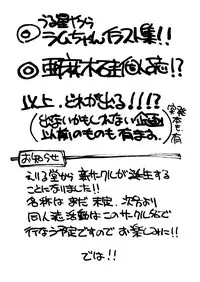 ◎うる星やつら
ラムちゃんイラスト集!!
◎亜麻木硅個人誌!?
以上、どれが出る!!!?
(出ないかもしれない企画
以前のものも有ます。)
お知らせ
える堂から新サークルが誕生する
ことになりました!!
名称はまだ未定、次名より
同人誌活動はこのサークル名で
行なう予定ですのでお楽しみに!!
では!!